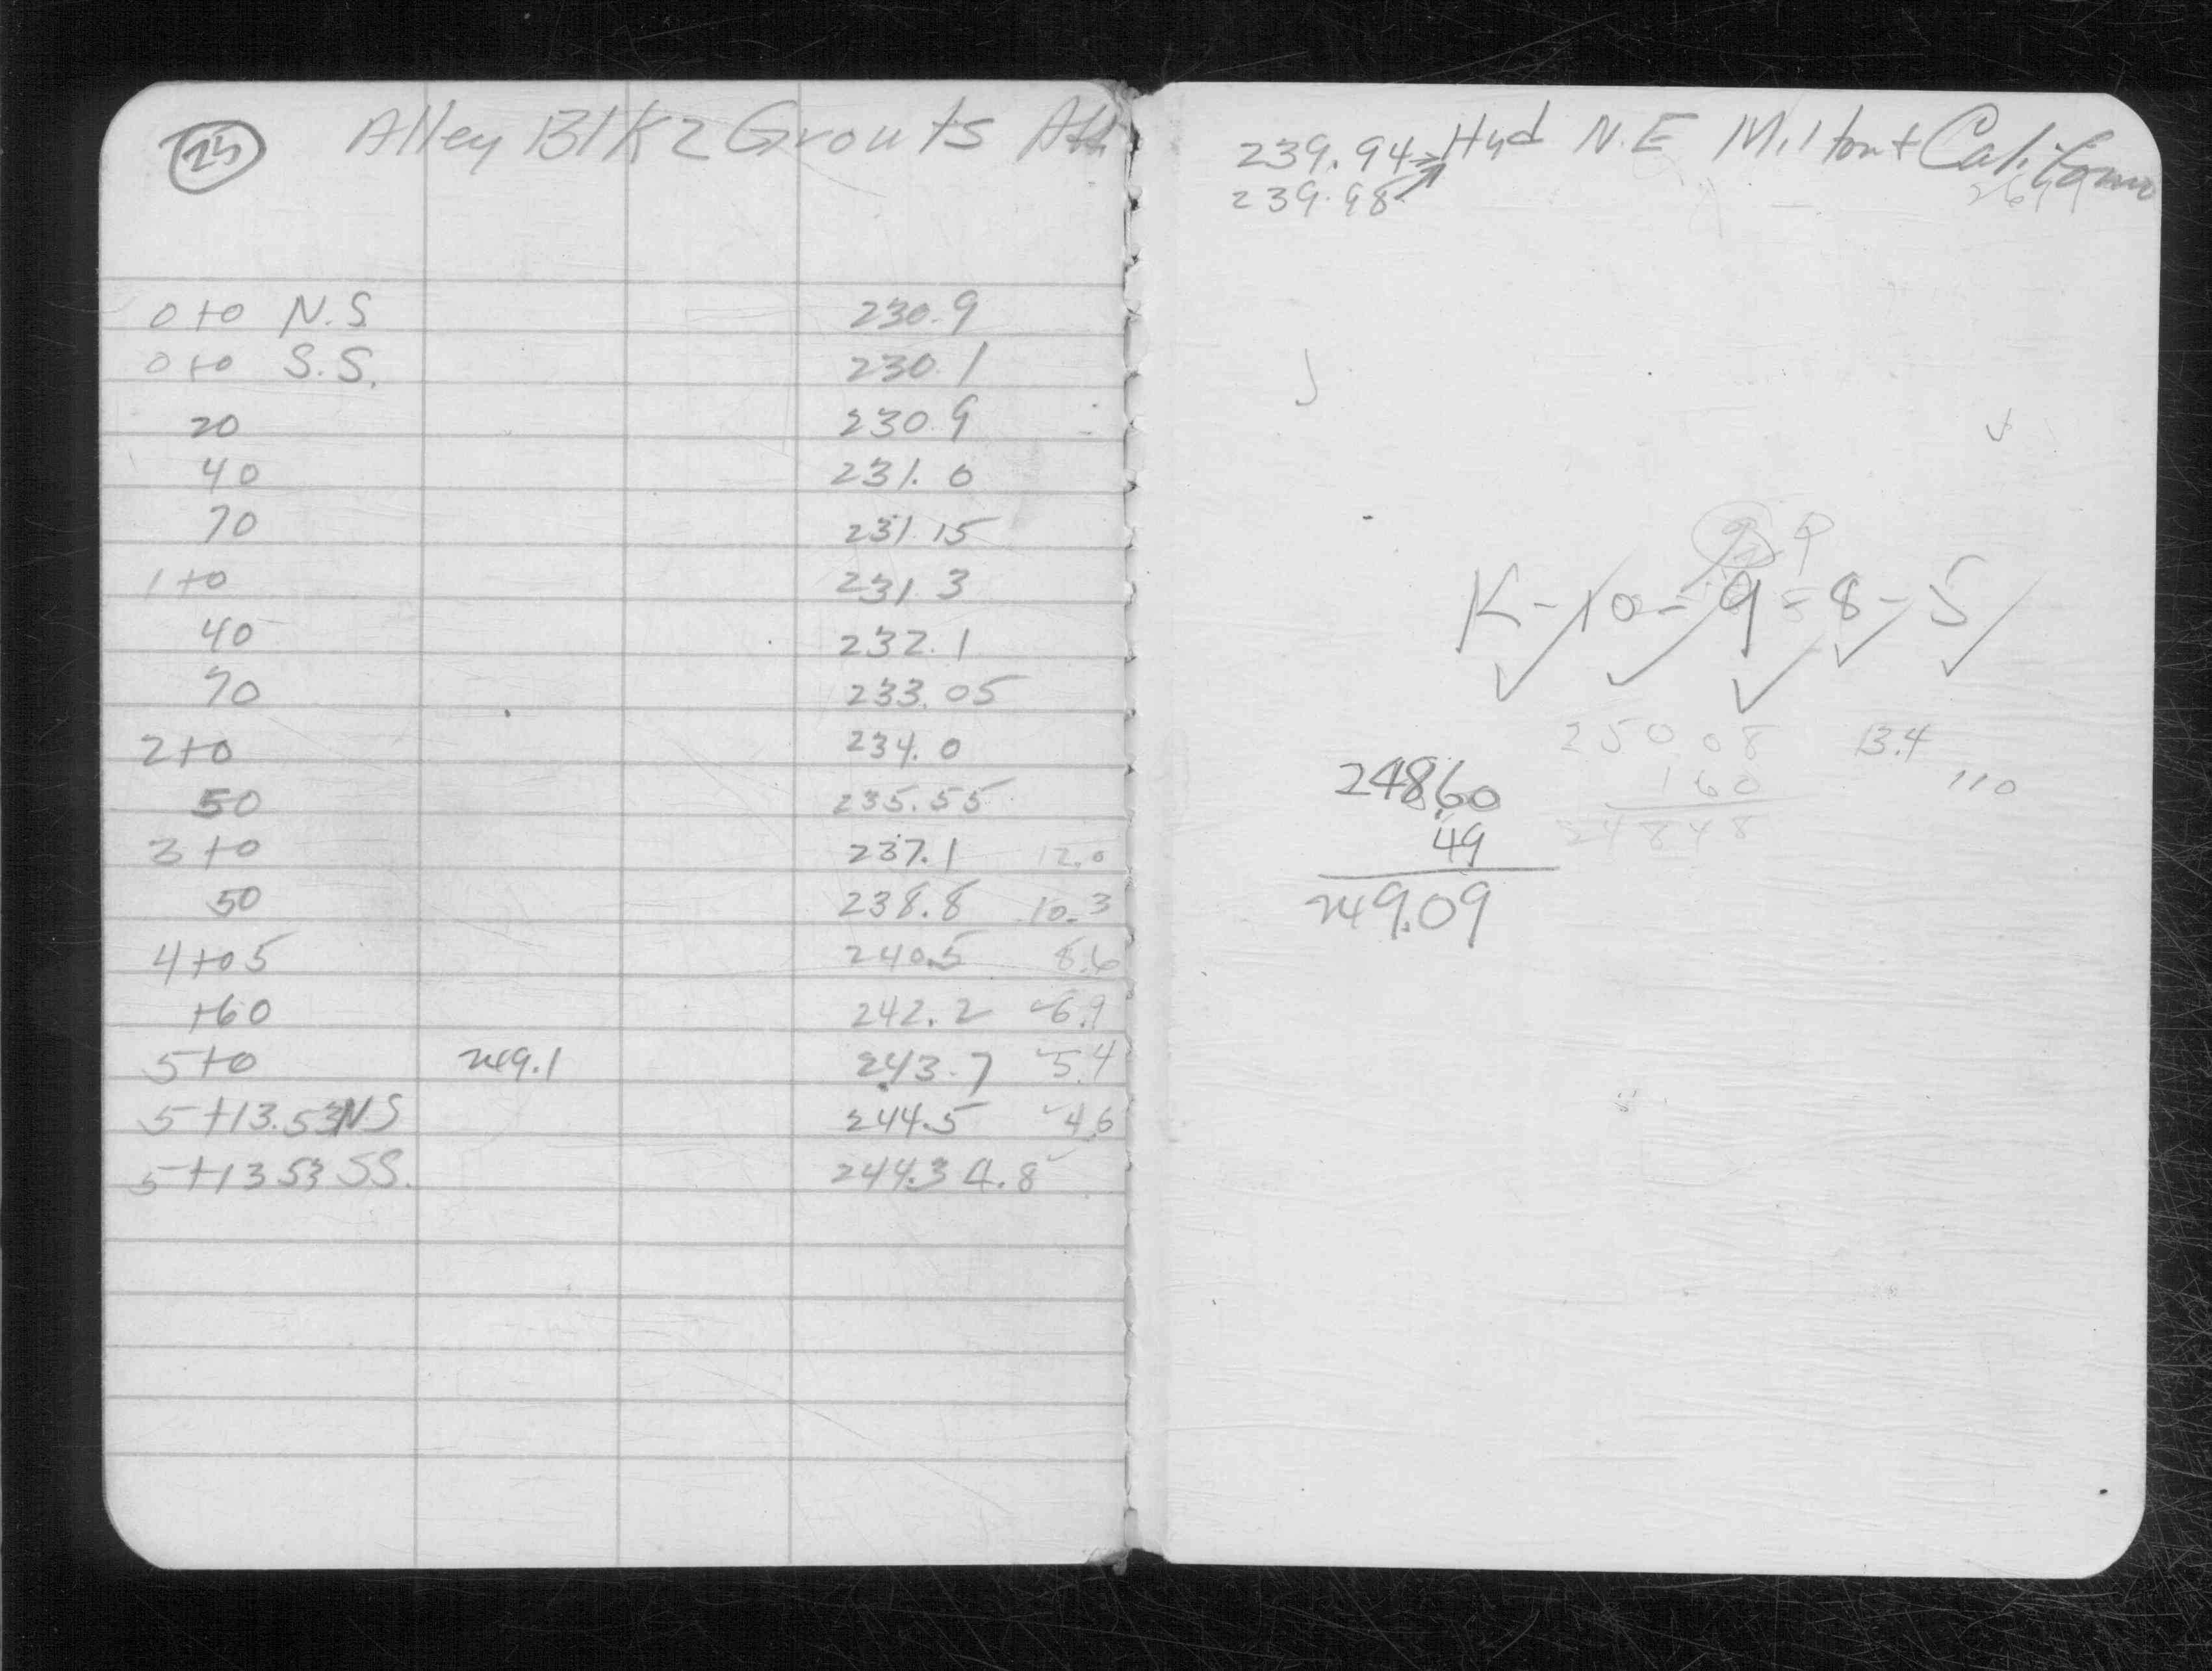 25 Alley Blk 2 Grouts Add
0+0 N.S 230.9
0+0 S.S. 230.1
20 230.9
40 231.0
70 231.15
1+0 231.3
40 232.1
70 233.05
2+0 234.0
50 235.55
3+0 237.1 12.0
50 238.8 10.3
4+05 240.5 8.6
+60 242.2 6.9
5+0 249.1 243.7 5.4
5+13.53 NS 244.5 4.6
5+13 53 SS. 244.3 4.8
239.94 Hyd N.E Milton + California
239.98
K-10-9-8-5
25008 13.4
160 110
24848
248.60
49
249.09